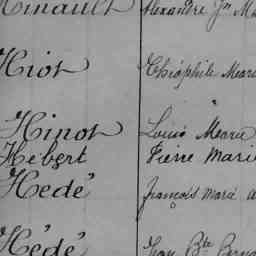 Hinault Alexandre Jn Ma
Hiot Théophile Marie
Hinot Louis Marie
Hébert Pierre Marie
Hédé François Marie
Hédé Jean Bte